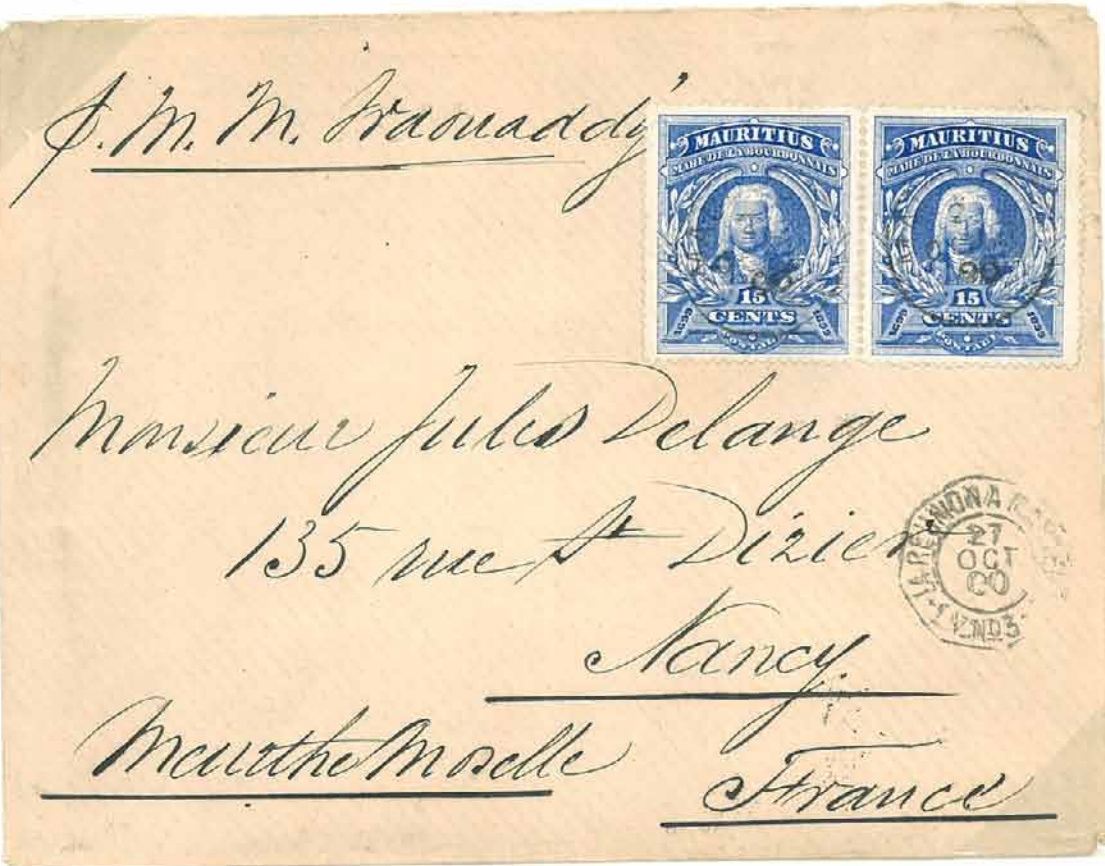 p. M. M. Iraouaddy
MAURITIUS
MAHE DE LA BOURDONNAIS
15
CENTS
1699 1899
POSTAGE
MAURITIUS
MAHE DE LA BOURDONNAIS
15
CENTS
1699 1899
POSTAGE
Monsieur Jules Delange
135 rue St Dizier
Nancy.
Meurthe Moselle
France
LA REUNION A
27
OCT
00
L.V.No3